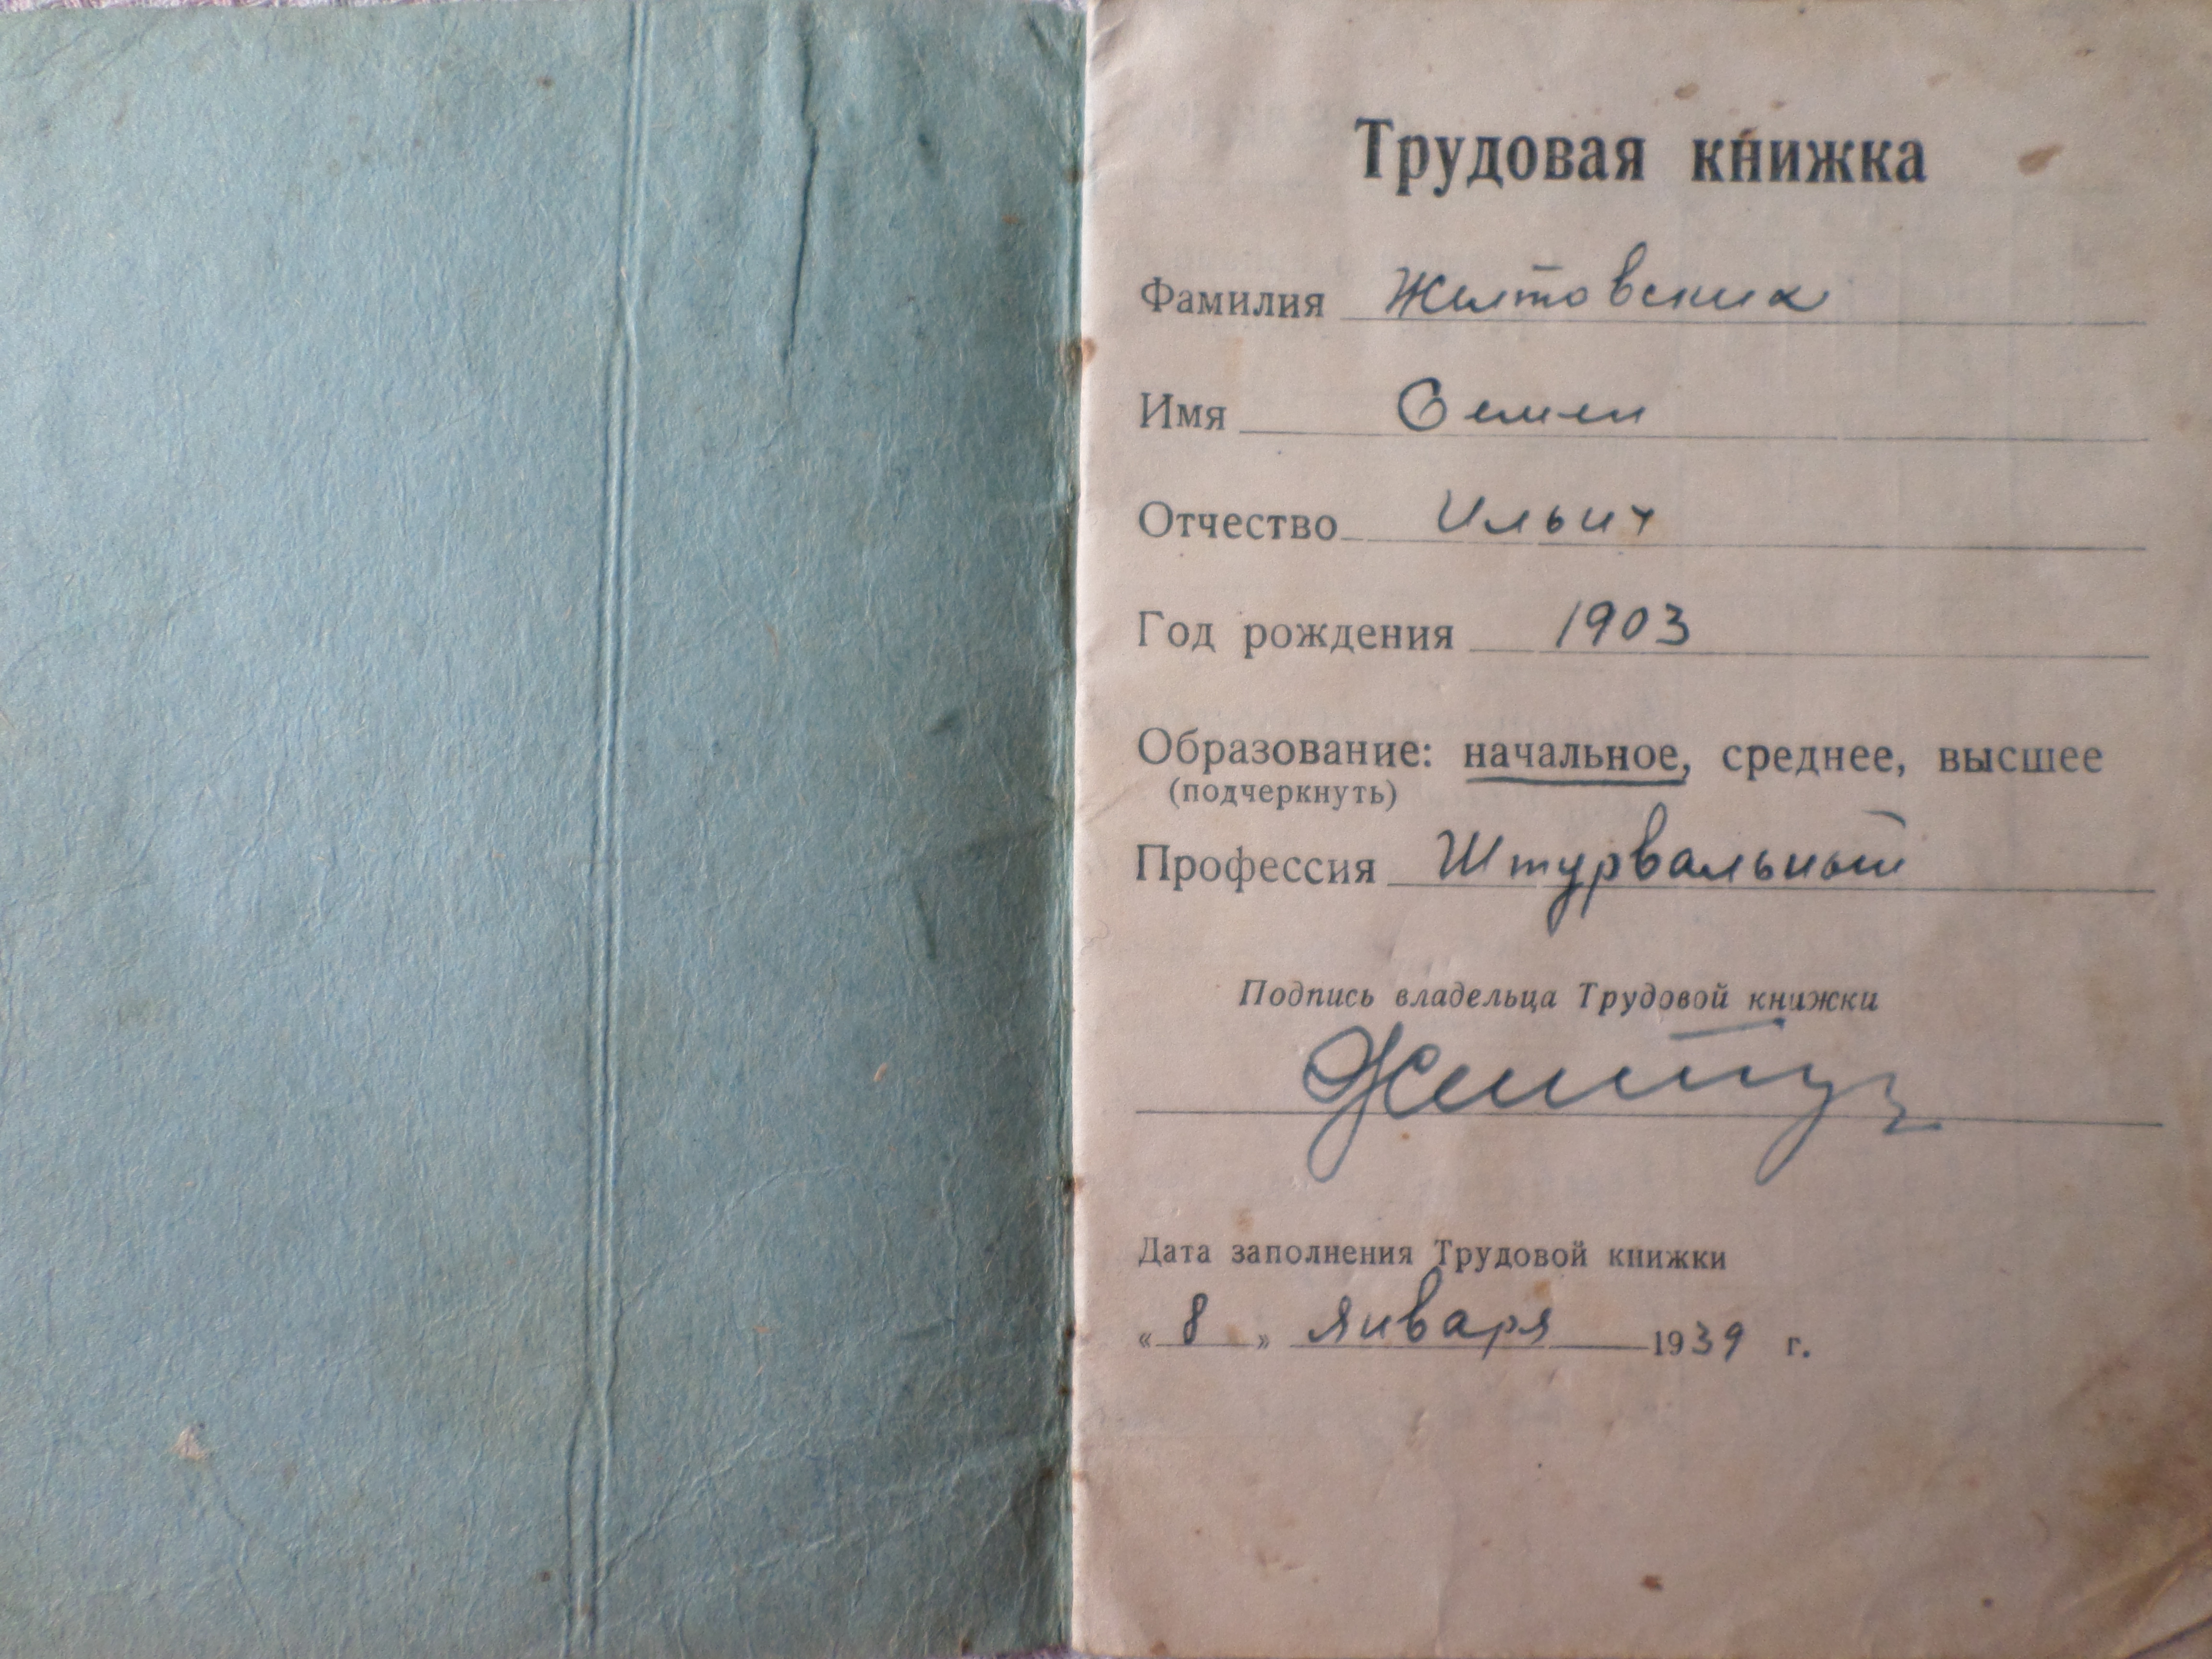 Трудовая книжка
Фамилия Житовских
Имя Семен
Отчество Ильич
Год рождения 1903
Образование: начальное, среднее, высшее
(подчеркнуть)
Профессия Штурвальный
Подпись владельца Трудовой книжки
Дата заполнения Трудовой книжки
« 8 » января 1939 г.